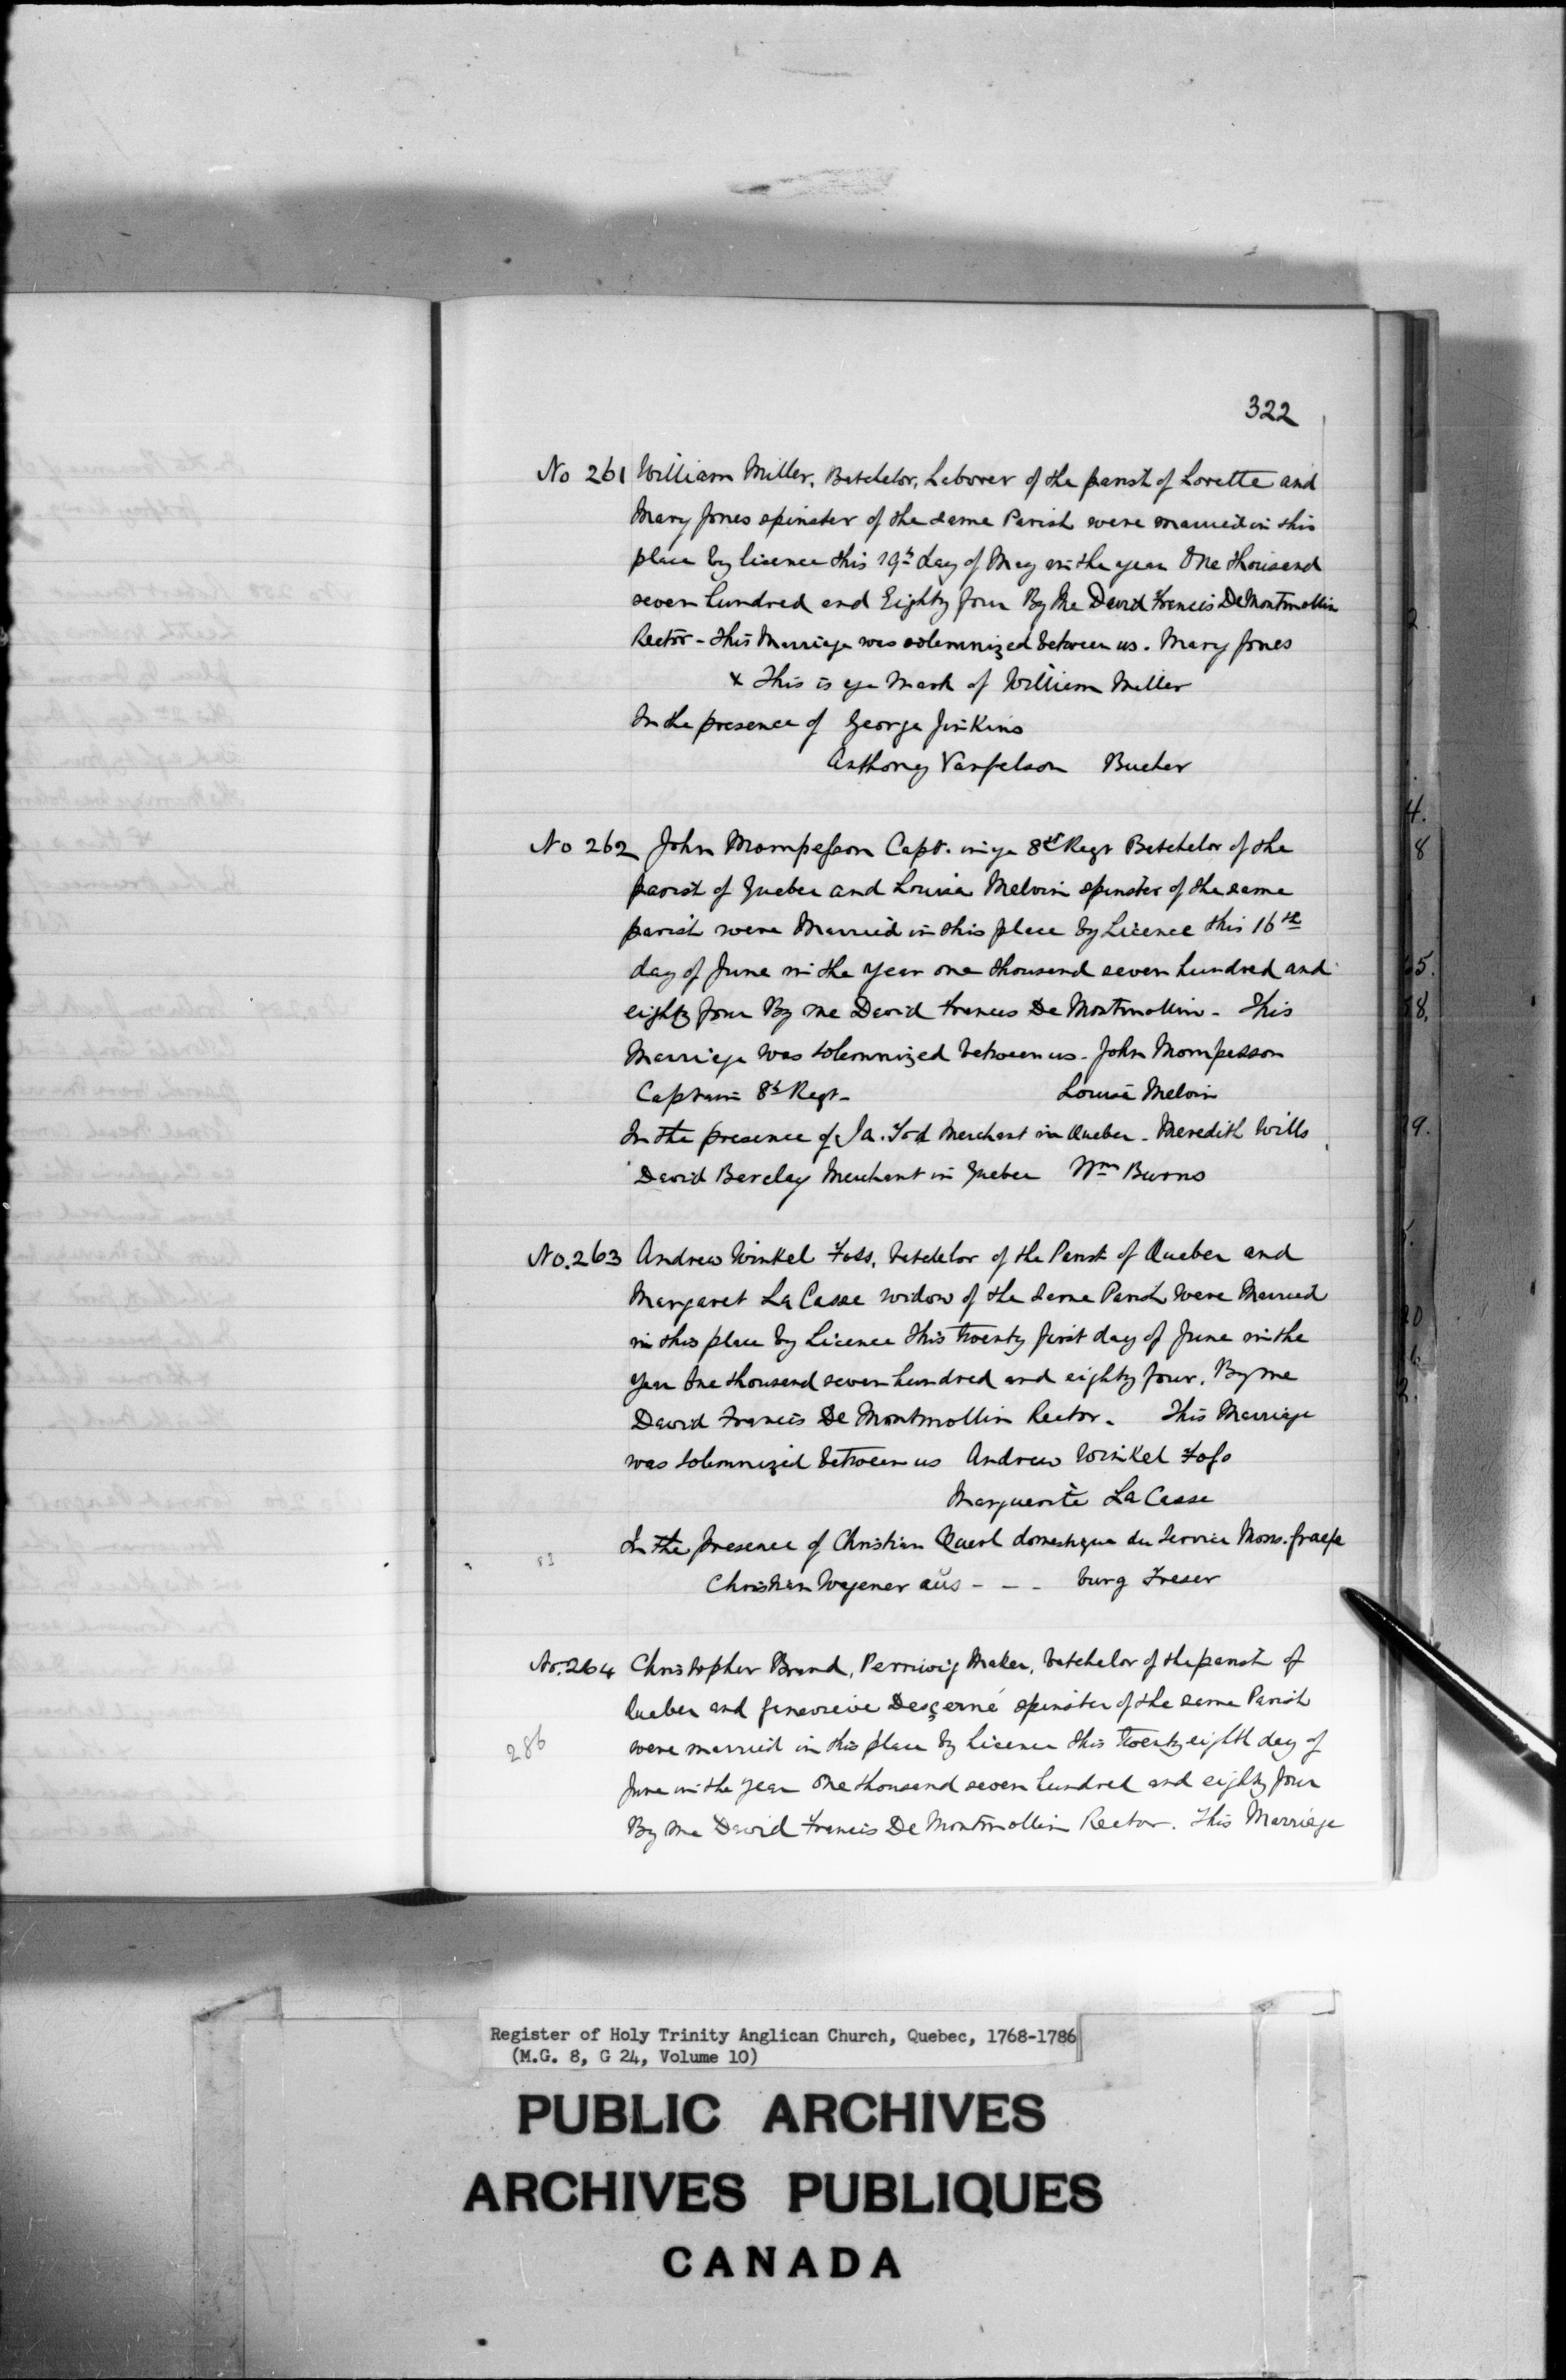 322
No 261 William Miller, Batchelor, Laborer of the parish of Lorette and
Mary Jones spinster of the same Parish were married in this
place by licence this 19th day of May in the year One thousand
seven hundred and Eighty four By Me David Francis DeMontmollin
Rector - This Marriage was solemnized between us. Mary Jones
x This is ye Mark of William Miller
In the presence of George Jinkins
Anthony Vanfelson Bucher
No 262 John Mompesson Capt. in ye 8th Regt Batchelor of the
parish of Quebec and Louisa Melvin spinster of the same
parish were Married in this place by Licence this 16th
day of June in the year one thousand seven hundred and
eighty four By me David Francis De Montmollin - This
Marriage was solemnized between us - John Mompesson
Captain 8th Regt - Louisa Melvin
In the presence of Ja. Tod Merchant in Quebec - Meredith Wills
David Barclay Merchant in Quebec Wm Burns
No. 263 Andrew Winkel Foss, batchelor of the Parish of Quebec and
Margaret La Casse widow of the same Parish were Married
in this place by Licence this twenty first day of June in the
year One thousand seven hundred and eighty four. By me
David Francis De Montmollin Rector. This Marriage
was solemnized between us Andrew Winkel Foss
Marguerite La Casse
In the presence of Christian domestique du Service Mons.
83
Christian Wagener aüs - - - burg
No. 264 Christopher Brand, Perriwig Maker, batchelor of the parish of
Quebec and Genevieve Desçerné spinster of the same Parish
286
were married in this place by Licence this twenty eighth day of
June in the year One thousand seven hundred and eighty four
By me David Francis De Montmollin Rector. This Marriage
Register of Holy Trinity Anglican Church, Quebec, 1768-1786
(M.G. 8, G 24, Volume 10)
PUBLIC ARCHIVES
ARCHIVES PUBLIQUES
CANADA